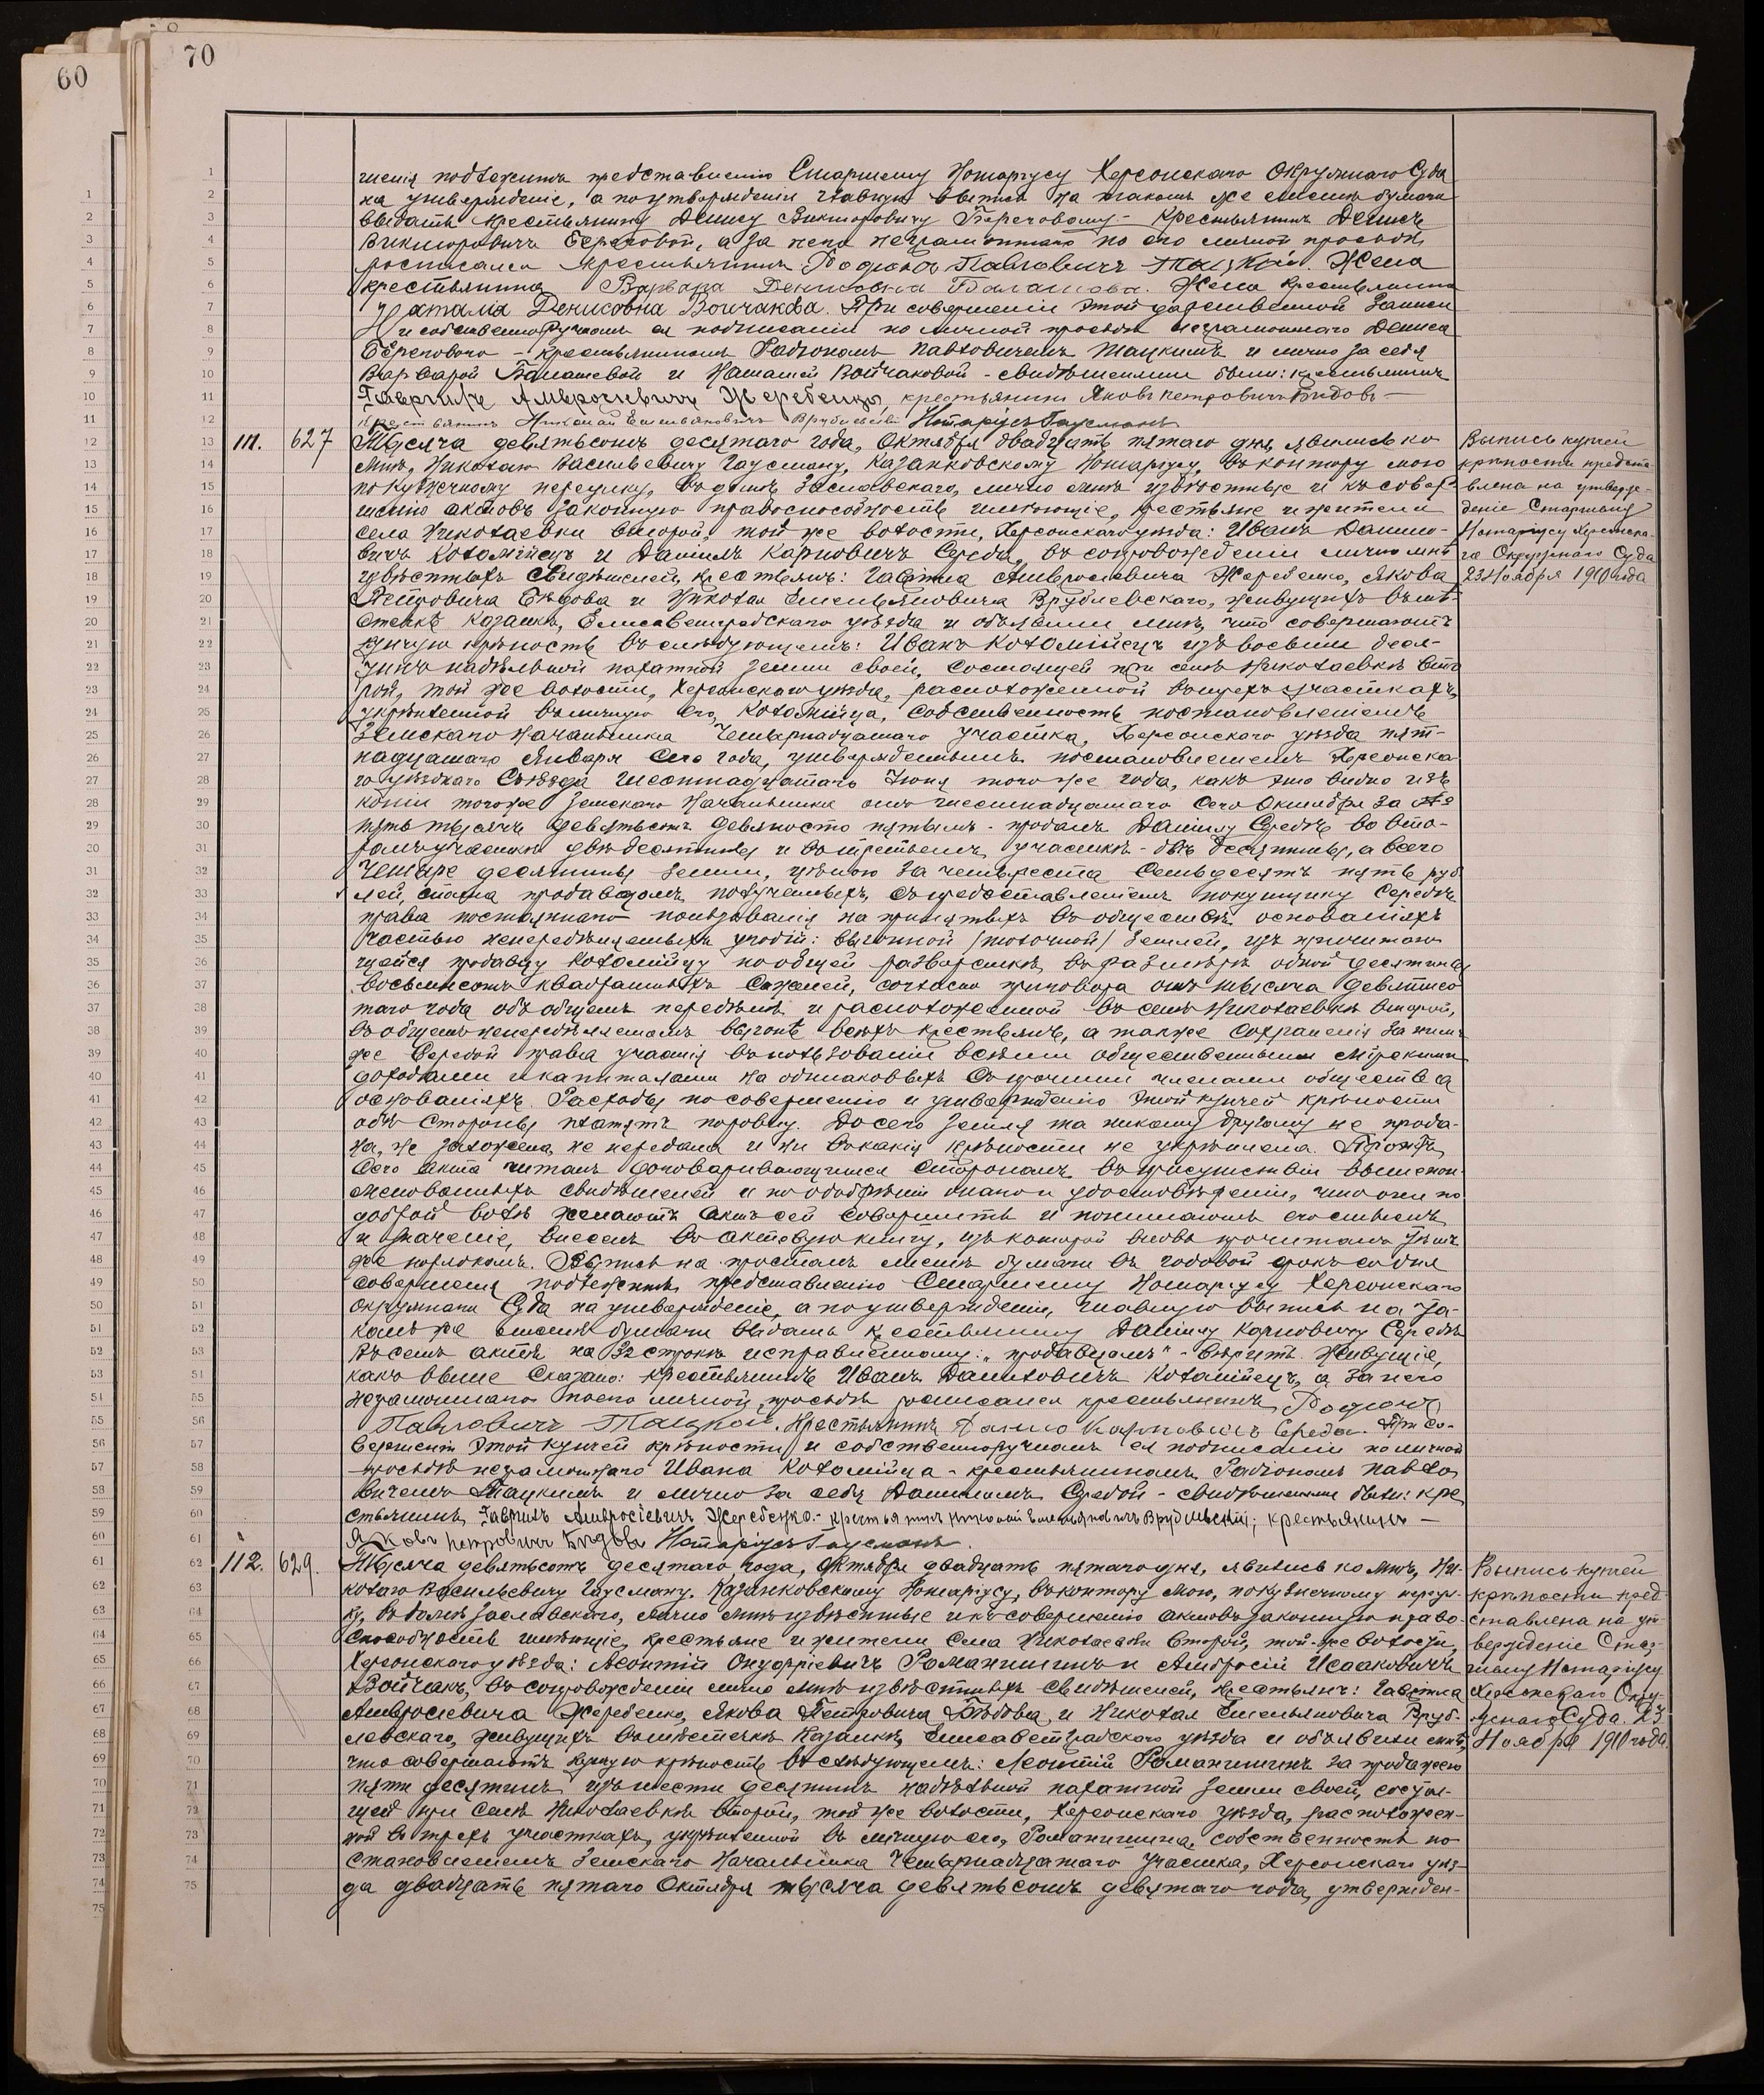 60
70
шенія подлежитъ представленію Старшему Нотаріусу Херсонскаго Окружнаго Суда
на утвержденіе, а по утвержденіи главную выпись на такомъ же листѣ бумаги
выдать крестьянину Денису Викторовичу Береговому - Крестьянинъ Денисъ
Викторовичъ Береговой, а за него неграмотнаго по его личной просьбѣ
росписался крестьянинъ Родіонъ Павловичъ Тацкій. Жена
крестьянина Варвара Денисовна Балашова. Жена крестьянина
Наталія Денисовна Войчакова. При совершеніи этой дарственной записи
и собственноручномъ ея подписаніи по личной просьбѣ неграмотнаго Дениса
Берегового - крестьяниномъ Родіономъ Павловичемъ Тацкимъ и лично за себя
Варварой Балашевой и Наталіей Войчаковой - свидѣтелями были: крестьянинъ
Гавріилъ Амвросіевичъ Жеребецко, крестьянинъ Яковъ Петровичъ Бѣдовъ -
крестьянинъ Николай Емельяновичъ Врублевскій Нотаріусъ Гаусманъ
111. 627 Тысяча девятьсотъ десятаго года, Октября двадцать пятаго дня, явились ко
мнѣ, Николаю Васильевичу Гаусману, Казанковскому Нотаріусу, въ контору мою
по Кузнечному переулку, въ домѣ Заславскаго, лично мнѣ извѣстные и къ совер-
шенію актовъ законную правоспособность имѣющіе, крестьяне и жители
села Николаевки второй, той же волости, Херсонскаго уѣзда: Иванъ Данило-
вичъ Коломіецъ и Даніилъ Карповичъ Середа, въ сопровожденіи лично мнѣ
извѣстныхъ свидѣтелей, крестьянъ: Гавріила Амвросіевича Жеребецко, Якова
Петровича Бѣдова и Николая Емельяновича Врублевскаго, живущихъ въ мѣ-
стечкѣ Казанкѣ, Елисаветградскаго уѣзда и объявили мнѣ, что совершаютъ
купчую крѣпость въ слѣдующемъ: Иванъ Коломіецъ изъ восьми деся-
тинъ надѣльной пахатной земли своей, состоящей при селѣ Николаевкѣ вто
рой, той же волости, Херсонскаго уѣзда, расположенной въ трехъ участкахъ,
укрѣпленной въ личную его, Коломійца, собственность постановленіемъ
Земскаго Начальника Четырнадцатаго участка, Херсонскаго уѣзда пят-
надцатаго Января сего года, утвержденнымъ постановленіемъ Херсонска-
го уѣзднаго Съѣзда шестнадцатаго Іюня того же года, какъ это видно изъ
копіи того же Земскаго Начальника отъ шестнадцатаго сего Октября за №
пять тысячъ девятьсотъ девяносто пятымъ - продалъ Даніилу Середѣ во вто-
ромъ участкѣ двѣ десятины и въ третьемъ участкѣ - двѣ десятины, а всего
четыре десятины земли, цѣною за четыреста семьдесятъ пять руб
лей, сполна продавцомъ полученныхъ, съ предоставленіемъ покупщику Середѣ
права постояннаго пользованія на принятыхъ въ обществѣ основаніяхъ
частью непередѣляемыхъ угодій: выгонной /толочной/ землей, изъ причитаю-
щейся продавцу Коломійцу по общей разверсткѣ, въ размѣрѣ одной десятины
восьмисотъ квадратныхъ сажней, согласно приговора отъ тысяча девятисо
таго года объ общемъ передѣлѣ и расположенной въ селѣ Николаевкѣ второй,
въ общемъ непередѣляемомъ выгонѣ всѣхъ крестьянъ, а также сохраненія за нимъ
же Середой права участія въ пользованіи всѣми общественными мірскими
доходами и капиталами на одинаковыхъ съ прочими членами общества
основаніяхъ. Расходы по совершенію и утвержденію этой купчей крѣпости
обѣ стороны платятъ поровну. До сего земля та никому другому не прода-
на, не заложена, не передана и ни въ какія крѣпости не укрѣплена. Проэктъ
сего акта читанъ договаривающимся сторонамъ въ присутствіи вышепои-
менованныхъ свидѣтелей и по одобреніи онаго и удостовѣреніи, что они по
доброй волѣ желаютъ актъ сей совершить и понимаютъ его смыслъ
и значеніе, внесенъ въ актовую книгу, изъ которой вновь прочитанъ тѣмъ
же порядкомъ. Выпись на простомъ листѣ бумаги въ годовой срокъ со дня
совершенія подлежитъ представленію Старшему Нотаріусу Херсонскаго
Окружнаго Суда на утвержденіе, а по утвержденіи, главную выпись на та-
комъ же листѣ бумаги выдать крестьянину Даніилу Карповичу Середѣ
Въ семъ актѣ на 32 строкѣ исправленному: „продавцомъ" - вѣрить. Живущіе,
какъ выше сказано: крестьянинъ Иванъ Даниловичъ Коломіецъ, а за него
неграмотнаго по его личной просьбѣ росписался крестьянинъ Родіонъ
Павловичъ Тацкій. Крестьянинъ Данило Карповичъ Середа. При со-
вершеніи этой купчей крѣпости и собственноручномъ ея подписаніи по личной
просьбѣ неграмотнаго Ивана Коломійца - крестьяниномъ Родіономъ Павло
вичемъ Тацкимъ и лично за себя Даніиломъ Середой - свидѣтелями были: кре
стьянинъ Гавріилъ Амвросіевичъ Жеребецко. - крестьянинъ Николай Емельяновичъ Врублевскій; крестьянинъ -
Яковъ Петровичъ Бѣдовъ Нотаріусъ Гаусманъ.
Выпись купчей
крѣпости предста-
влена на утвержде-
деніе Старшему
Нотаріусу Херсонска-
го Окружнаго Суда
23 Ноября 1910 года
112. 629. Тысяча девятьсотъ десятаго года, Октября двадцать пятаго дня, явились ко мнѣ, Ни-
колаю Васильевичу Гаусману, Казанковскому Нотаріусу, въ контору мою, по кузнечному переул-
ку, въ домѣ Заславскаго, лично мнѣ извѣстные и къ совершенію актовъ законную право-
способность имѣющіе, крестьяне и жители села Николаевки второй, той-же волости,
Херсонскаго уѣзда: Леонтій Онуфріевичъ Романишинъ и Амвросій Исааковичъ
Войчакъ, въ сопровожденіи лично мнѣ извѣстныхъ свидѣтелей, крестьянъ: Гавріила
Амвросіевича Жеребецко, Якова Петровича Бѣдова, и Николая Емельяновича Вруб-
левскаго, живущихъ въ мѣстечкѣ Казанкѣ, Елисаветградскаго уѣзда и объявили мнѣ,
что совершаютъ купчую крѣпость въ слѣдующемъ: Леонтій Романишинъ за продажею
пяти десятинъ изъ шести десятинъ надѣльной пахатной земли своей, состоя-
щей при селѣ Николаевкѣ второй, той же волости, Херсонскаго уѣзда, расположен-
ной въ трехъ участкахъ, укрѣпленной въ личную его, Романишина, собственность по
становленіемъ Земскаго Начальника Четырнадцатаго участка, Херсонскаго уѣз-
да двадцать пятаго Октября тысяча девятьсотъ девятаго года, утвержден-
Выпись купчей
крѣпости пред-
ставлена на ут-
вержденіе Стар-
шему Нотаріусу
Херсонскаго Окру-
жнаго Суда. 23
Ноября 1910 года.